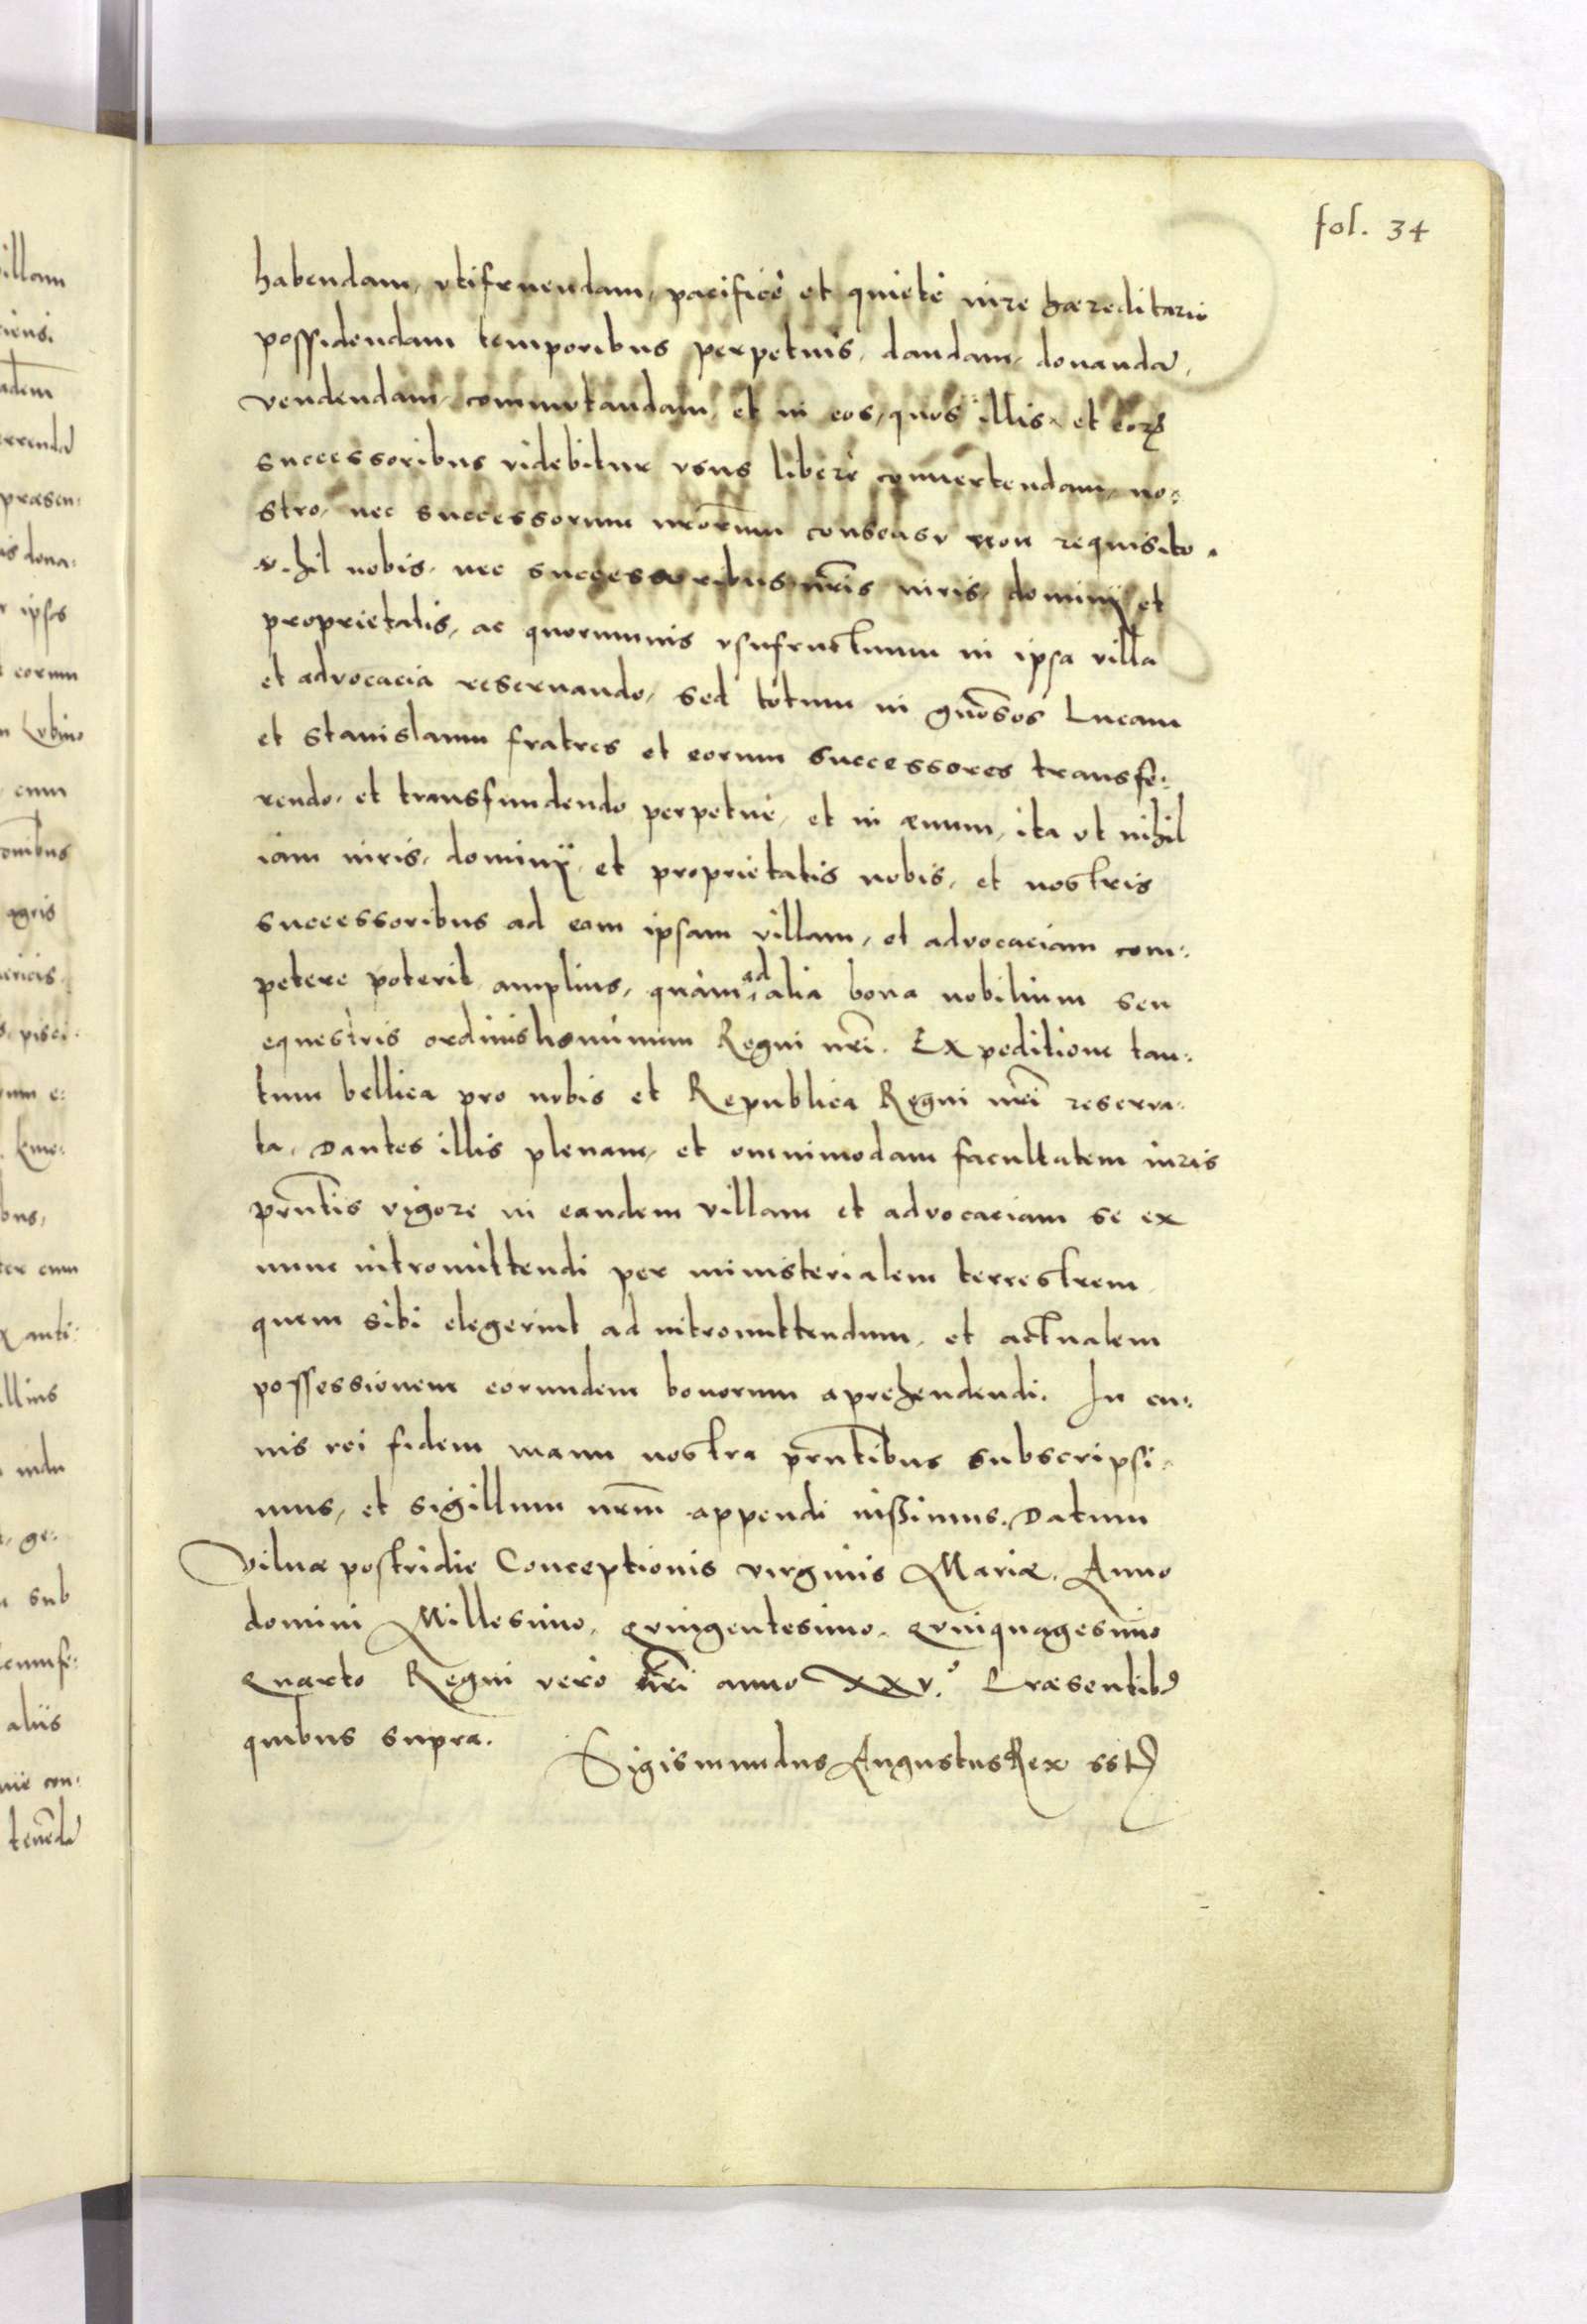 fol. 34
habendam, vtifruendam, pacificè et quietè iure hæreditario
possidendam temporibus perpetuis, dandam, donandã,
vendendam, commutandam, et in eos, quos illis, et eorꝝ
successoribus videbitur vsus liberè conuertendam, no:
stro, nec successorum nrõrum consensv non requisito.
nihil nobis, nec successoribus nr̃is iuris, dominij et
proprietatis, ac quorumuis vsufructuum in ipsa villa
et advocacia reseruando, sed totum in gnõsos Lucam
et Stanislaum fratres et eorum successores transfe:
rendo, et transfundendo perpetuè, et in æuum, ita vt nihil
iam iuris, dominij, et proprietatis nobis, et nostris
successoribus ad eam ipsam villam, et advocaciam com:
petere poterit amplius, quàm ad alia bona nobilium seu
equestris ordinis hominum Regni nr̃i. Expeditione tan:
tum bellica pro nobis et Republica Regni nr̃i reserva:
ta, Dantes illis plenam, et omnimodam facultatem iuris
pr̃ntis vigore in eandem villam et advocaciam se ex
nunc intromittendi per ministerialem terrestrem
quem sibi elegerint ad intromittendum, et actualem
possessionem eorundem bonorum aprehendendi. In cu:
uis rei fidem manu nostra pr̃ntibus subscripsi:
mus, et sigillum nr̃m appendi iussimus. Datum
Vilnæ postridie Conceptionis virginis Mariæ, Anno
domini Millesimo, Quingentesimo, Quinquagesimo
Quarto Regni verò nr̃i anno XXV.º Præsentibꝰ
quibus supra.
Sigismundus Augustus Rex sst
illam
iensi
adem
præsen:
is dona:
ipsos
eorum
cum
agris
pisci
um e:
bus,
anti:
llius
indu
ge:
sub
cumfe:
aliis
con:
tenẽdã